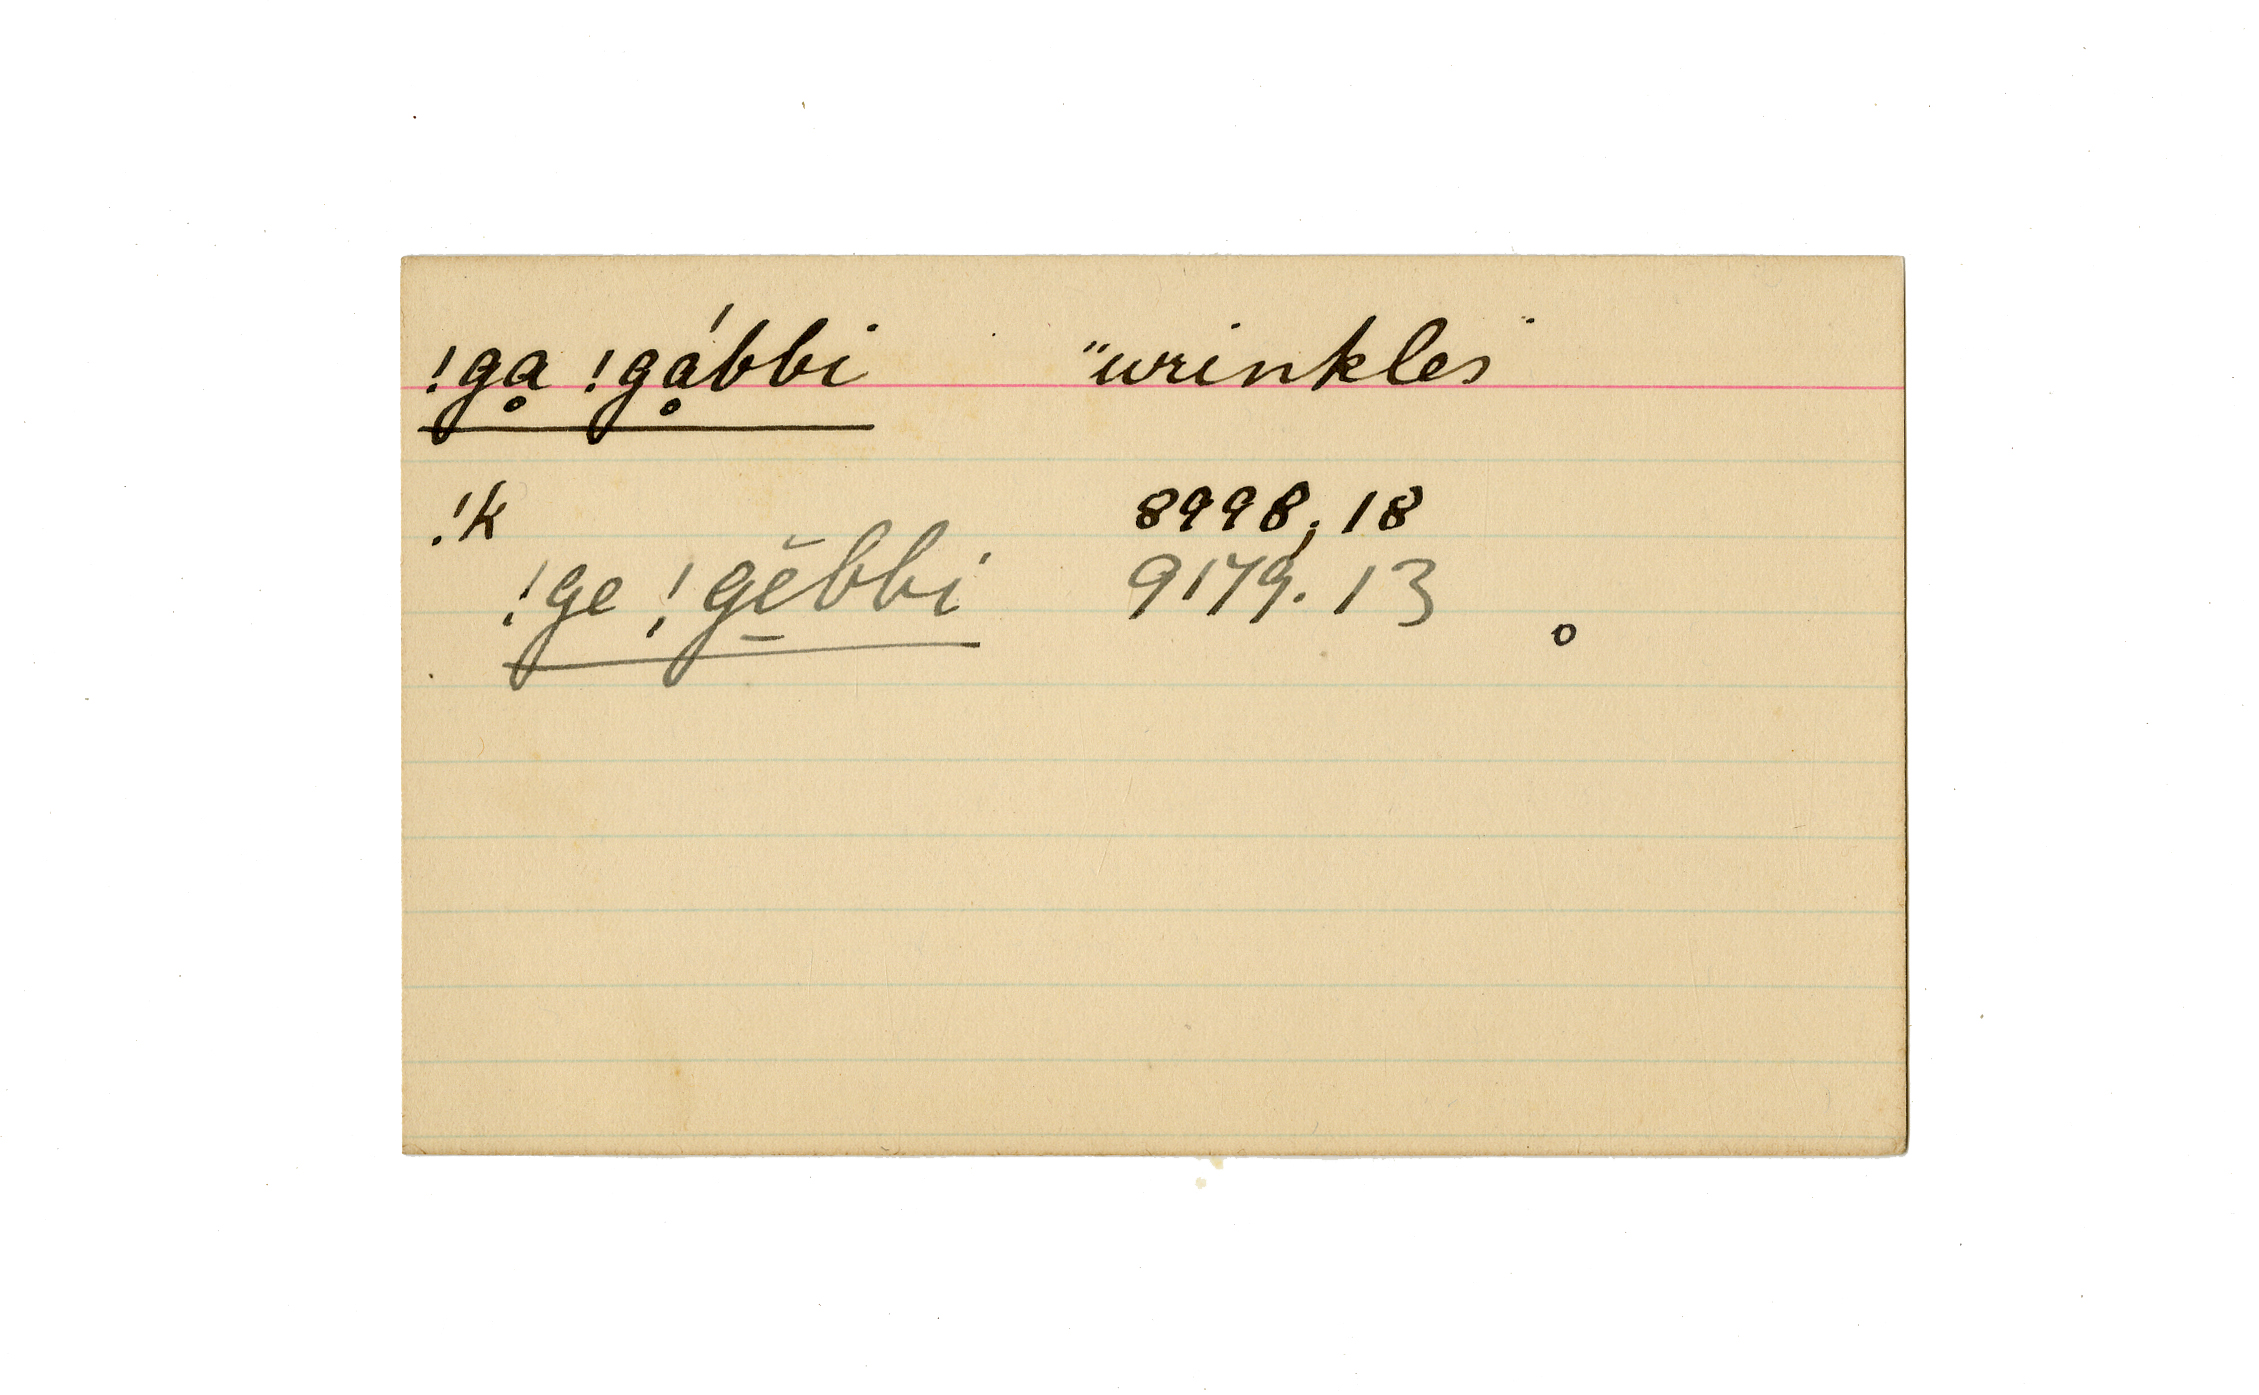 !g̥a !gḁ́bbi "wrinkles"
!k 8998, 18
!ge !gĕ̱bbi 9179. 13 o